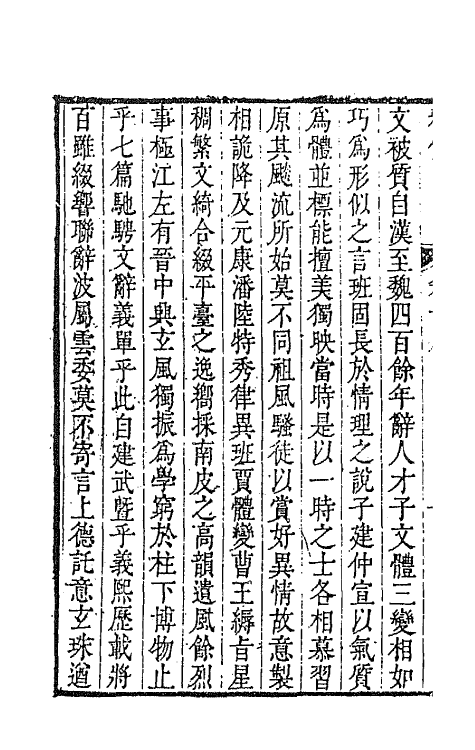 文被質自漢至魏四百餘年辭人才子文體三變相如
巧爲形似之言班固長於情理之說子建仲宣以氣質
爲體並標能擅美獨映當時是以一時之士各相慕習
原其飈流所始莫不同祖風騷徒以賞好異情故意製
相詭降及元康潘陸特秀律異班賈體變曹王縟旨星
稠繁文綺合綴平臺之逸響採南皮之高韻遺風餘烈
事極江左有晉中興玄風獨振爲學窮於柱下博物止
乎七篇馳騁文辭義單乎此自建武暨乎義熙歷載將
百雖綴響聯辭波屬雲委莫不寄言上德託意玄珠遒